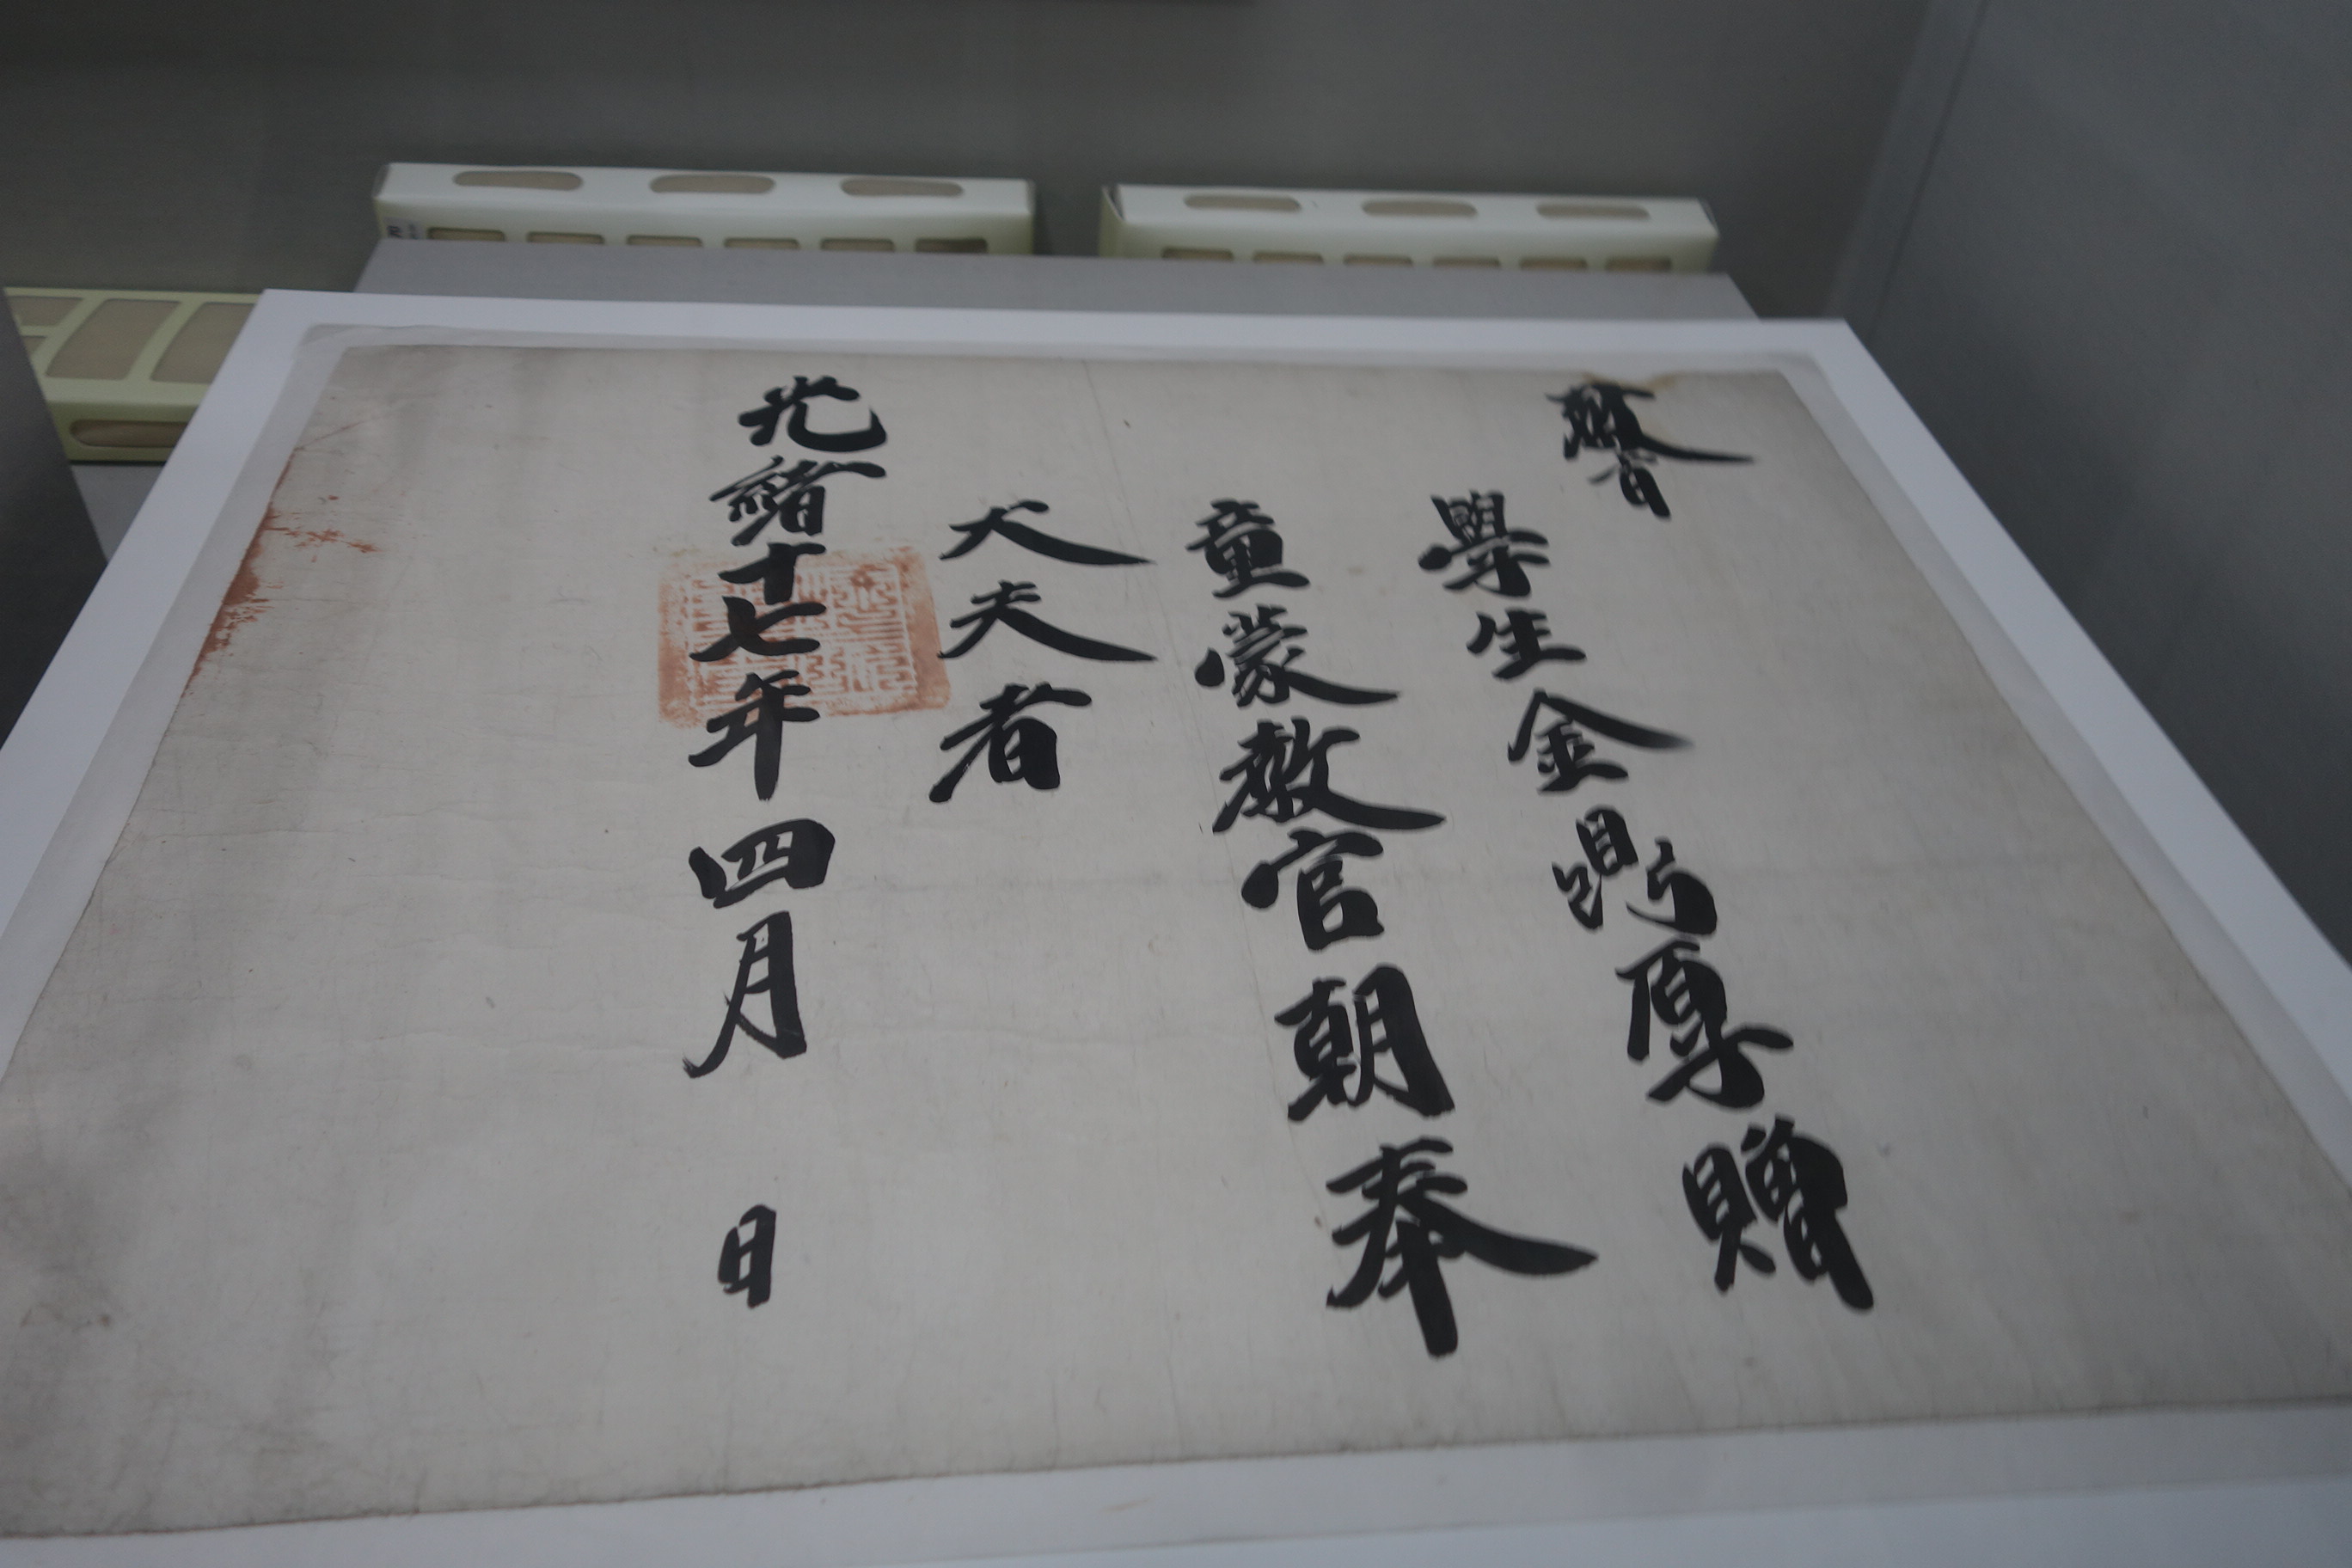 敎旨
學生金鼎厚贈
童蒙敎官朝奉
大夫者
光緖十七年四月 日